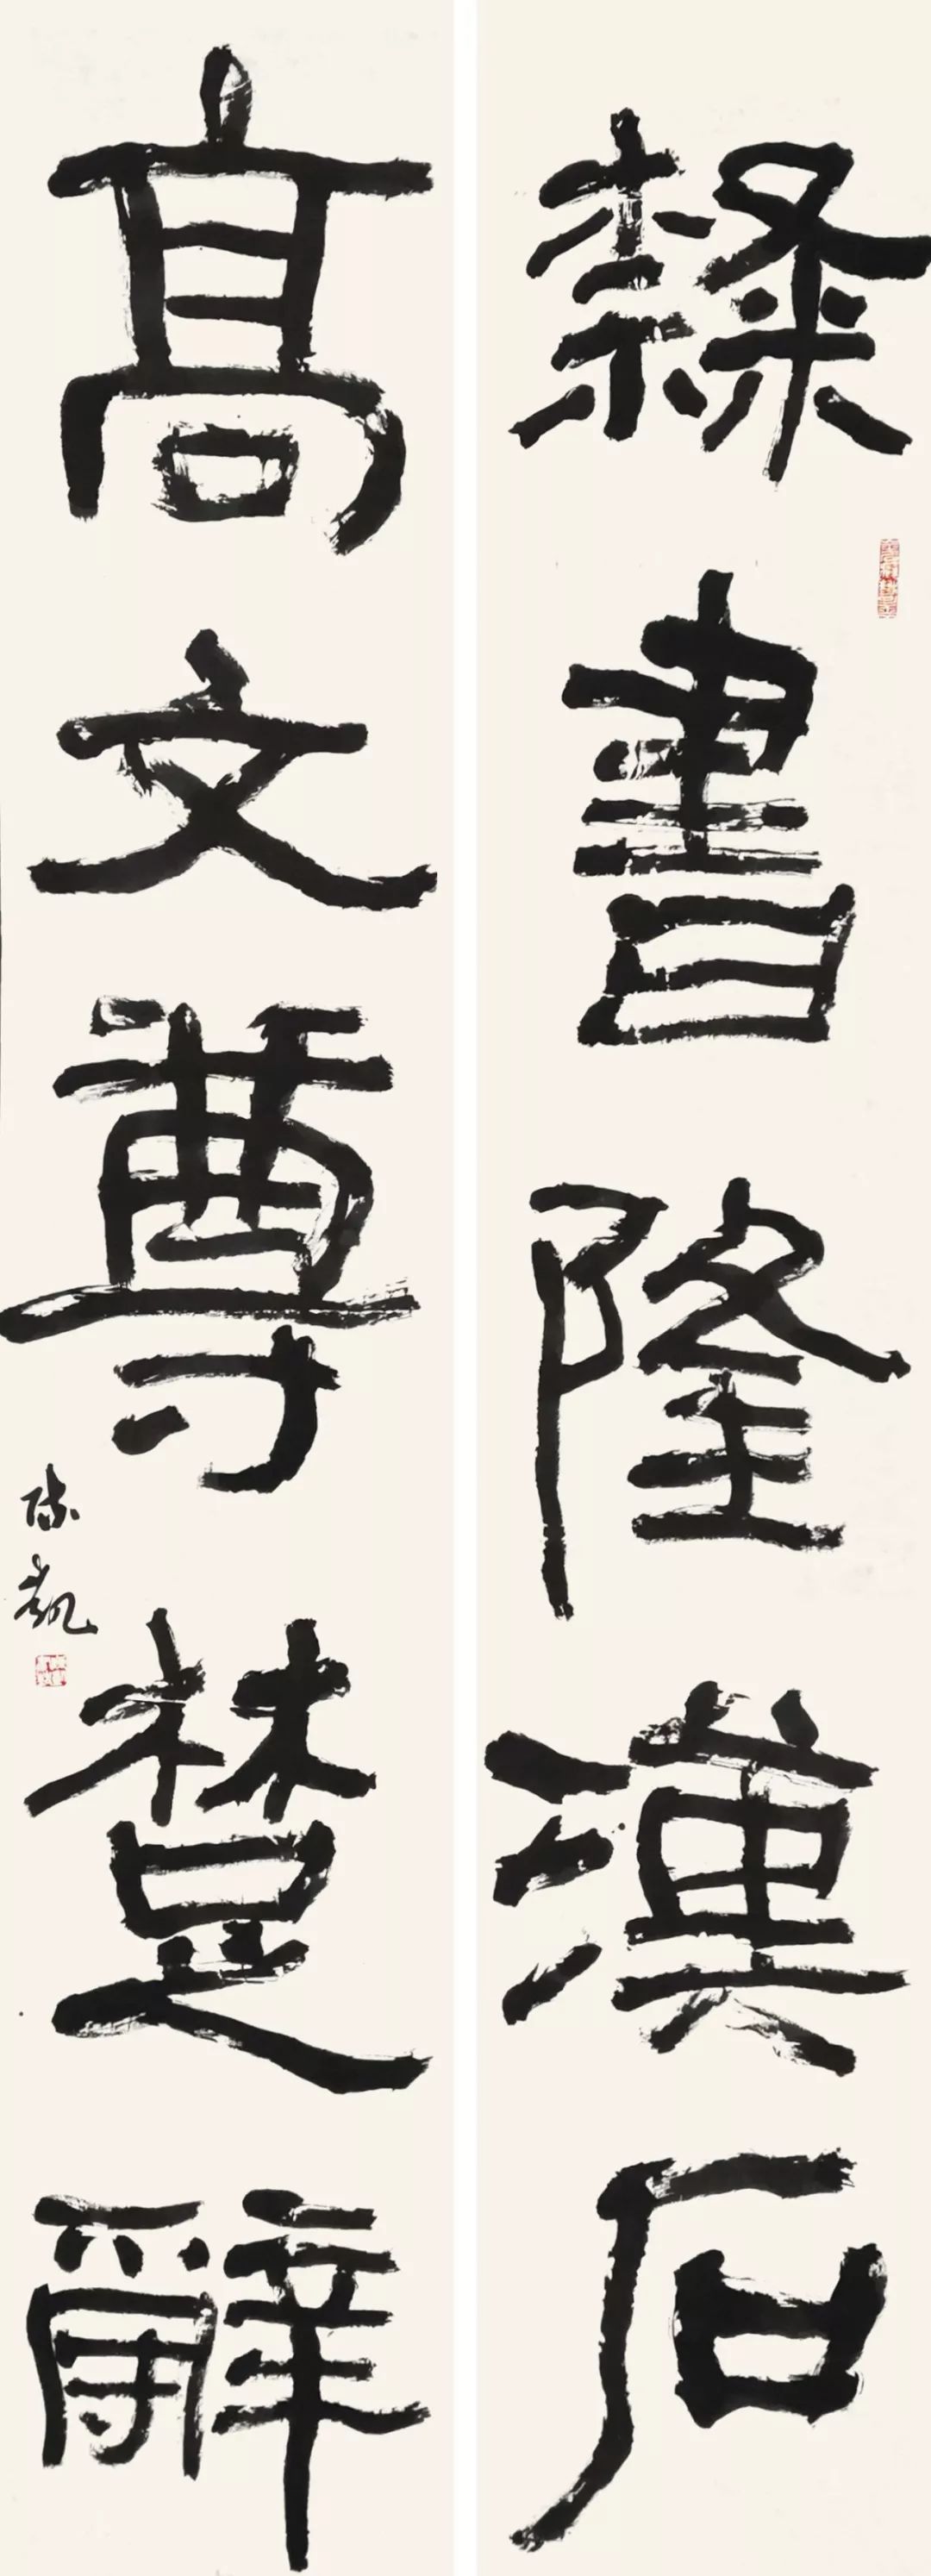 隸書隆漢石
高文尊楚辭
陳凱